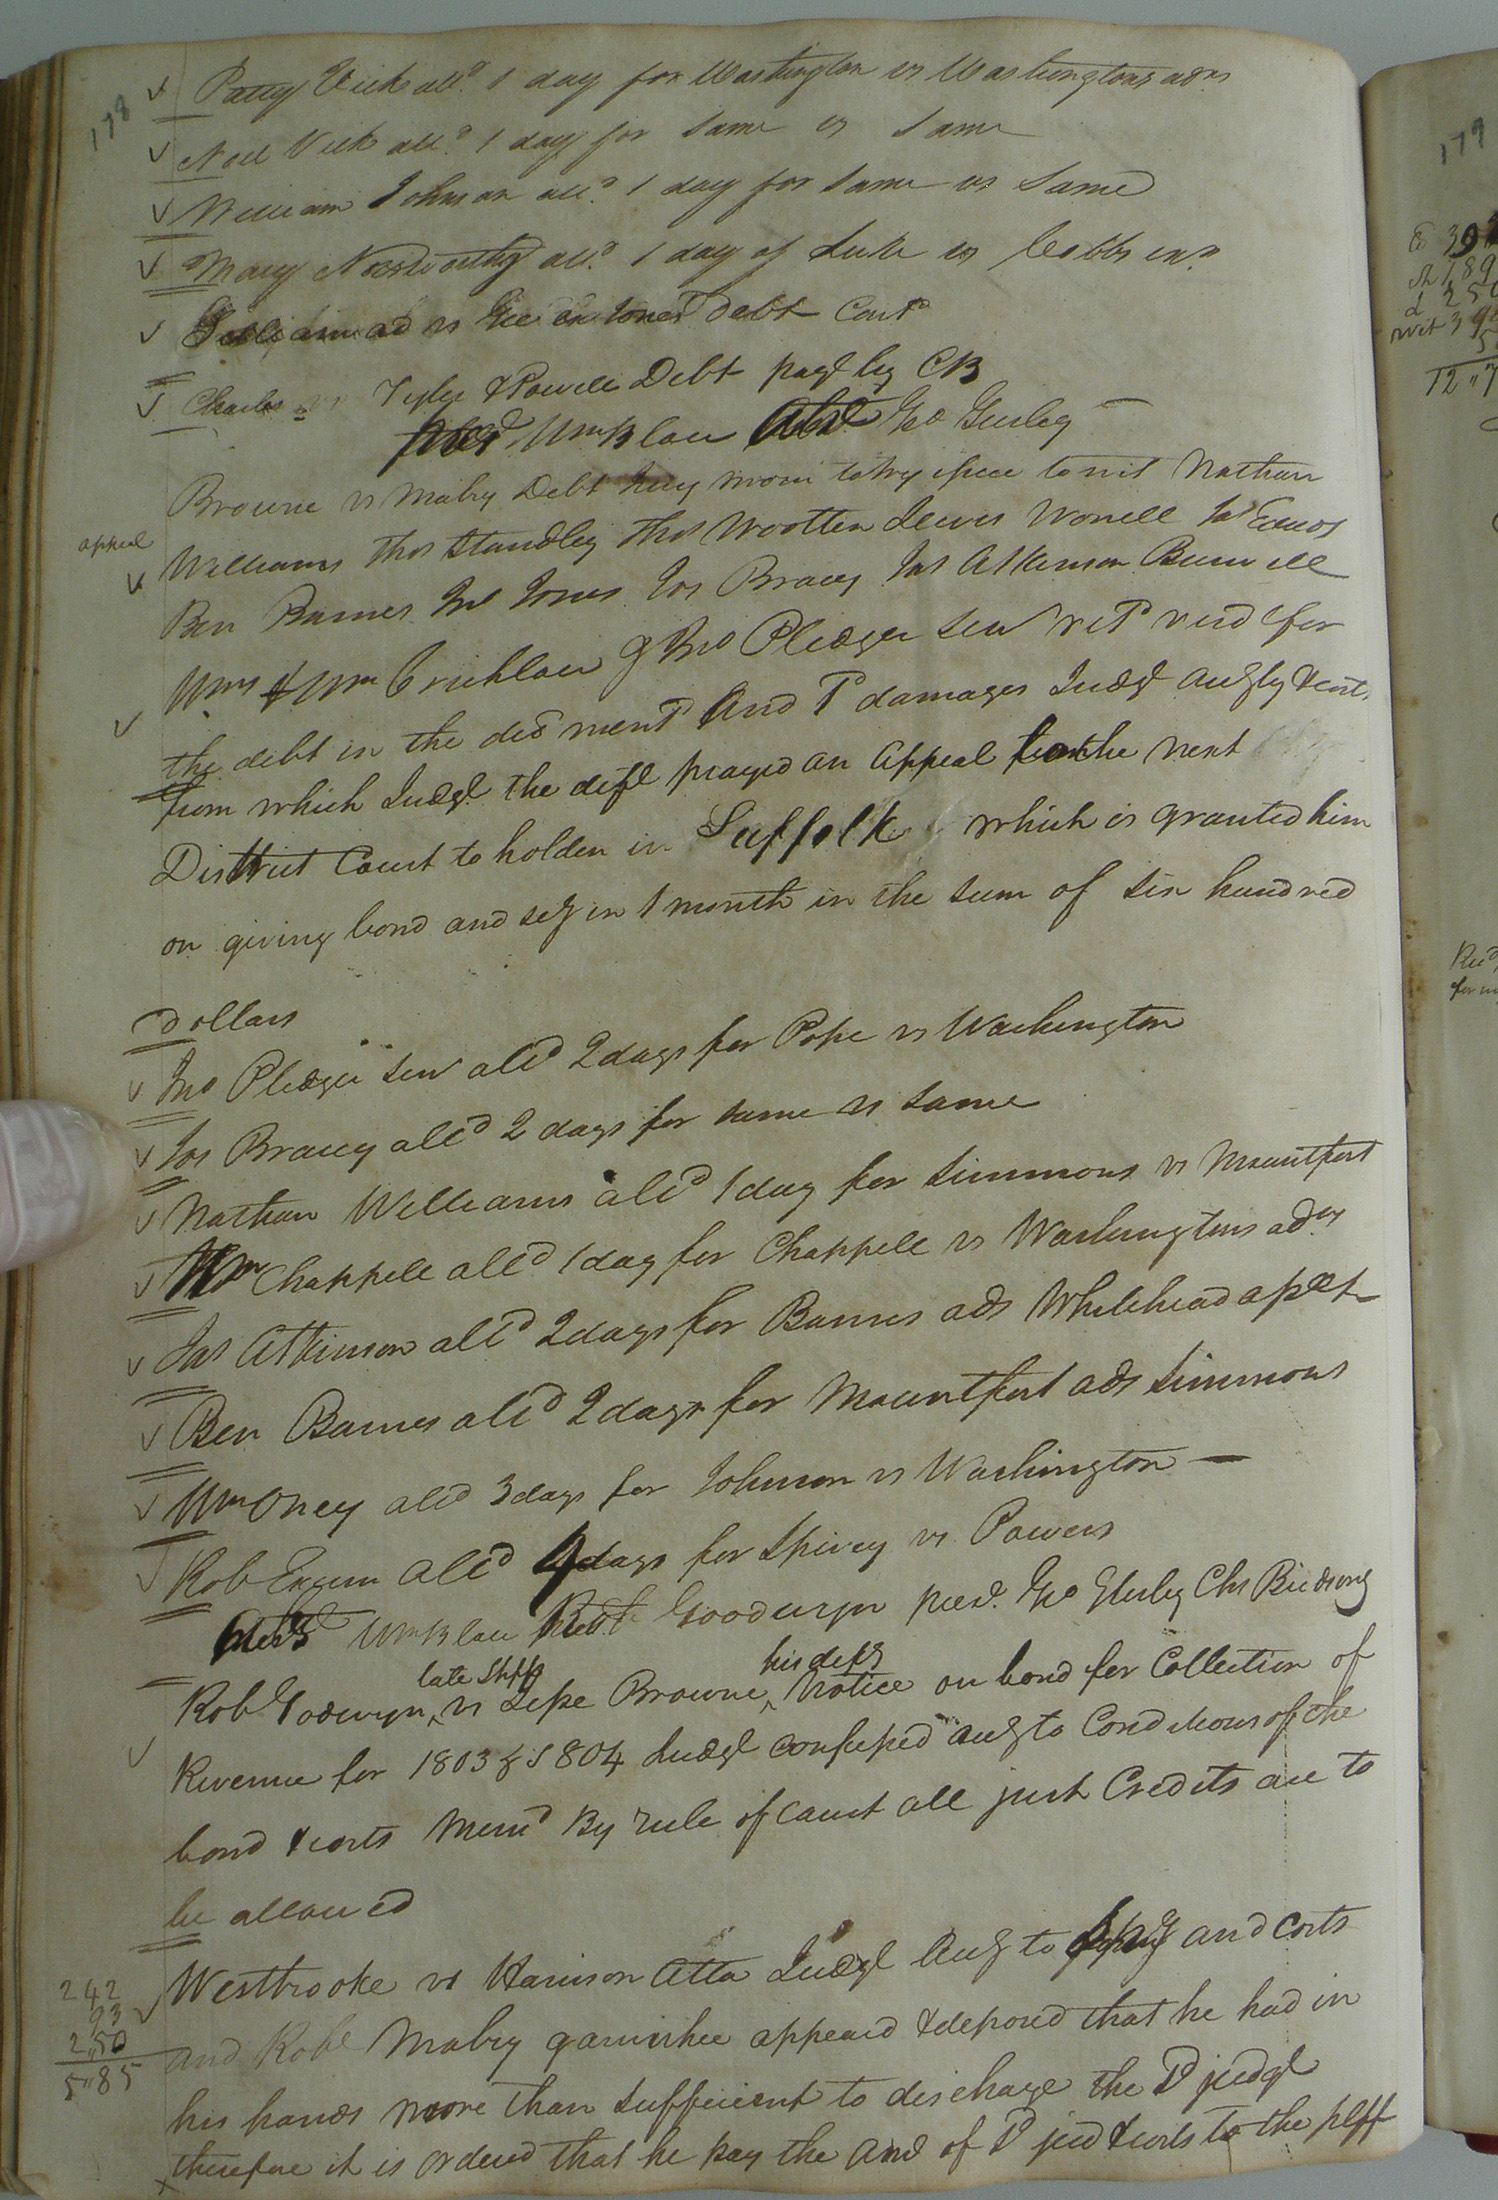 178
Patty Vick alld 1 day for Washington vs Washingtons adrs
Noel Vick alld 1 day for same vs same
William Johnson alld 1 day for same vs same
Mary Norsworthy alld 1 day of Luke vs Cobbs exr
ad vs Debt Contd
Charles vs Tyler & Powell Debt payt by CB
Wm Blow Geo Gurley
Browne vs Mabry Debt Jury sworn to try issue to wit Nathan
appeal
Williams Thos Standley Thos Wootten Lewis Worrell Jas
Ben Barnes Jno Jones Jos Bracy Jas Atkinson Burwell
Wms & Wm Crichlow & Jno Pledger senr retd verd for
the debt in the decd ment And 1d damages Judgt accgly & costs
from which Judgt the deft prayed an appeal to the next
District Court to holden in Suffolk which is granted him
on giving bond and secy in 1 month in the sum of six hundred
Dollars
Jno Pledger senr alld 2 days for Pope vs Washington
Jos Bracy alld 2 days for same vs same
Nathan Williams alld 1 day for Simmons vs Mountfort
Wm Chappell alld 1 day for Chappell vs Washingtons adrs
Jas Atkinson alld 2 days for Barnes ads Whitehead
Ben Barnes alld 2 days for Mountfort ads Simmons
Wm Oney alld 3 days for Johnson vs Washington
Rob Exum alld 4 days for Spivey vs Powers
Wm Blow Goodwyn Geo Gurley Chs Birdsong
late Shff his depy
Rob Goodwyn vs Jesse Browne Notice on bond for Collection of
Revenue for 1803 & 1804 Judgt confessed accg to Conditions of the
bond & costs Memd By rule of Court all just Credits are to
be allowed
Westbrooke vs Harrison Atta Judgt Accg to and costs
and Robt Mabry garnishee appeard & deposed that he had in
his hands more than sufficient to discharge the sd judgt
therefore it is ordered that he pay the amt of sd jud & costs to the plff
242
93
2,,50
5,,85
179